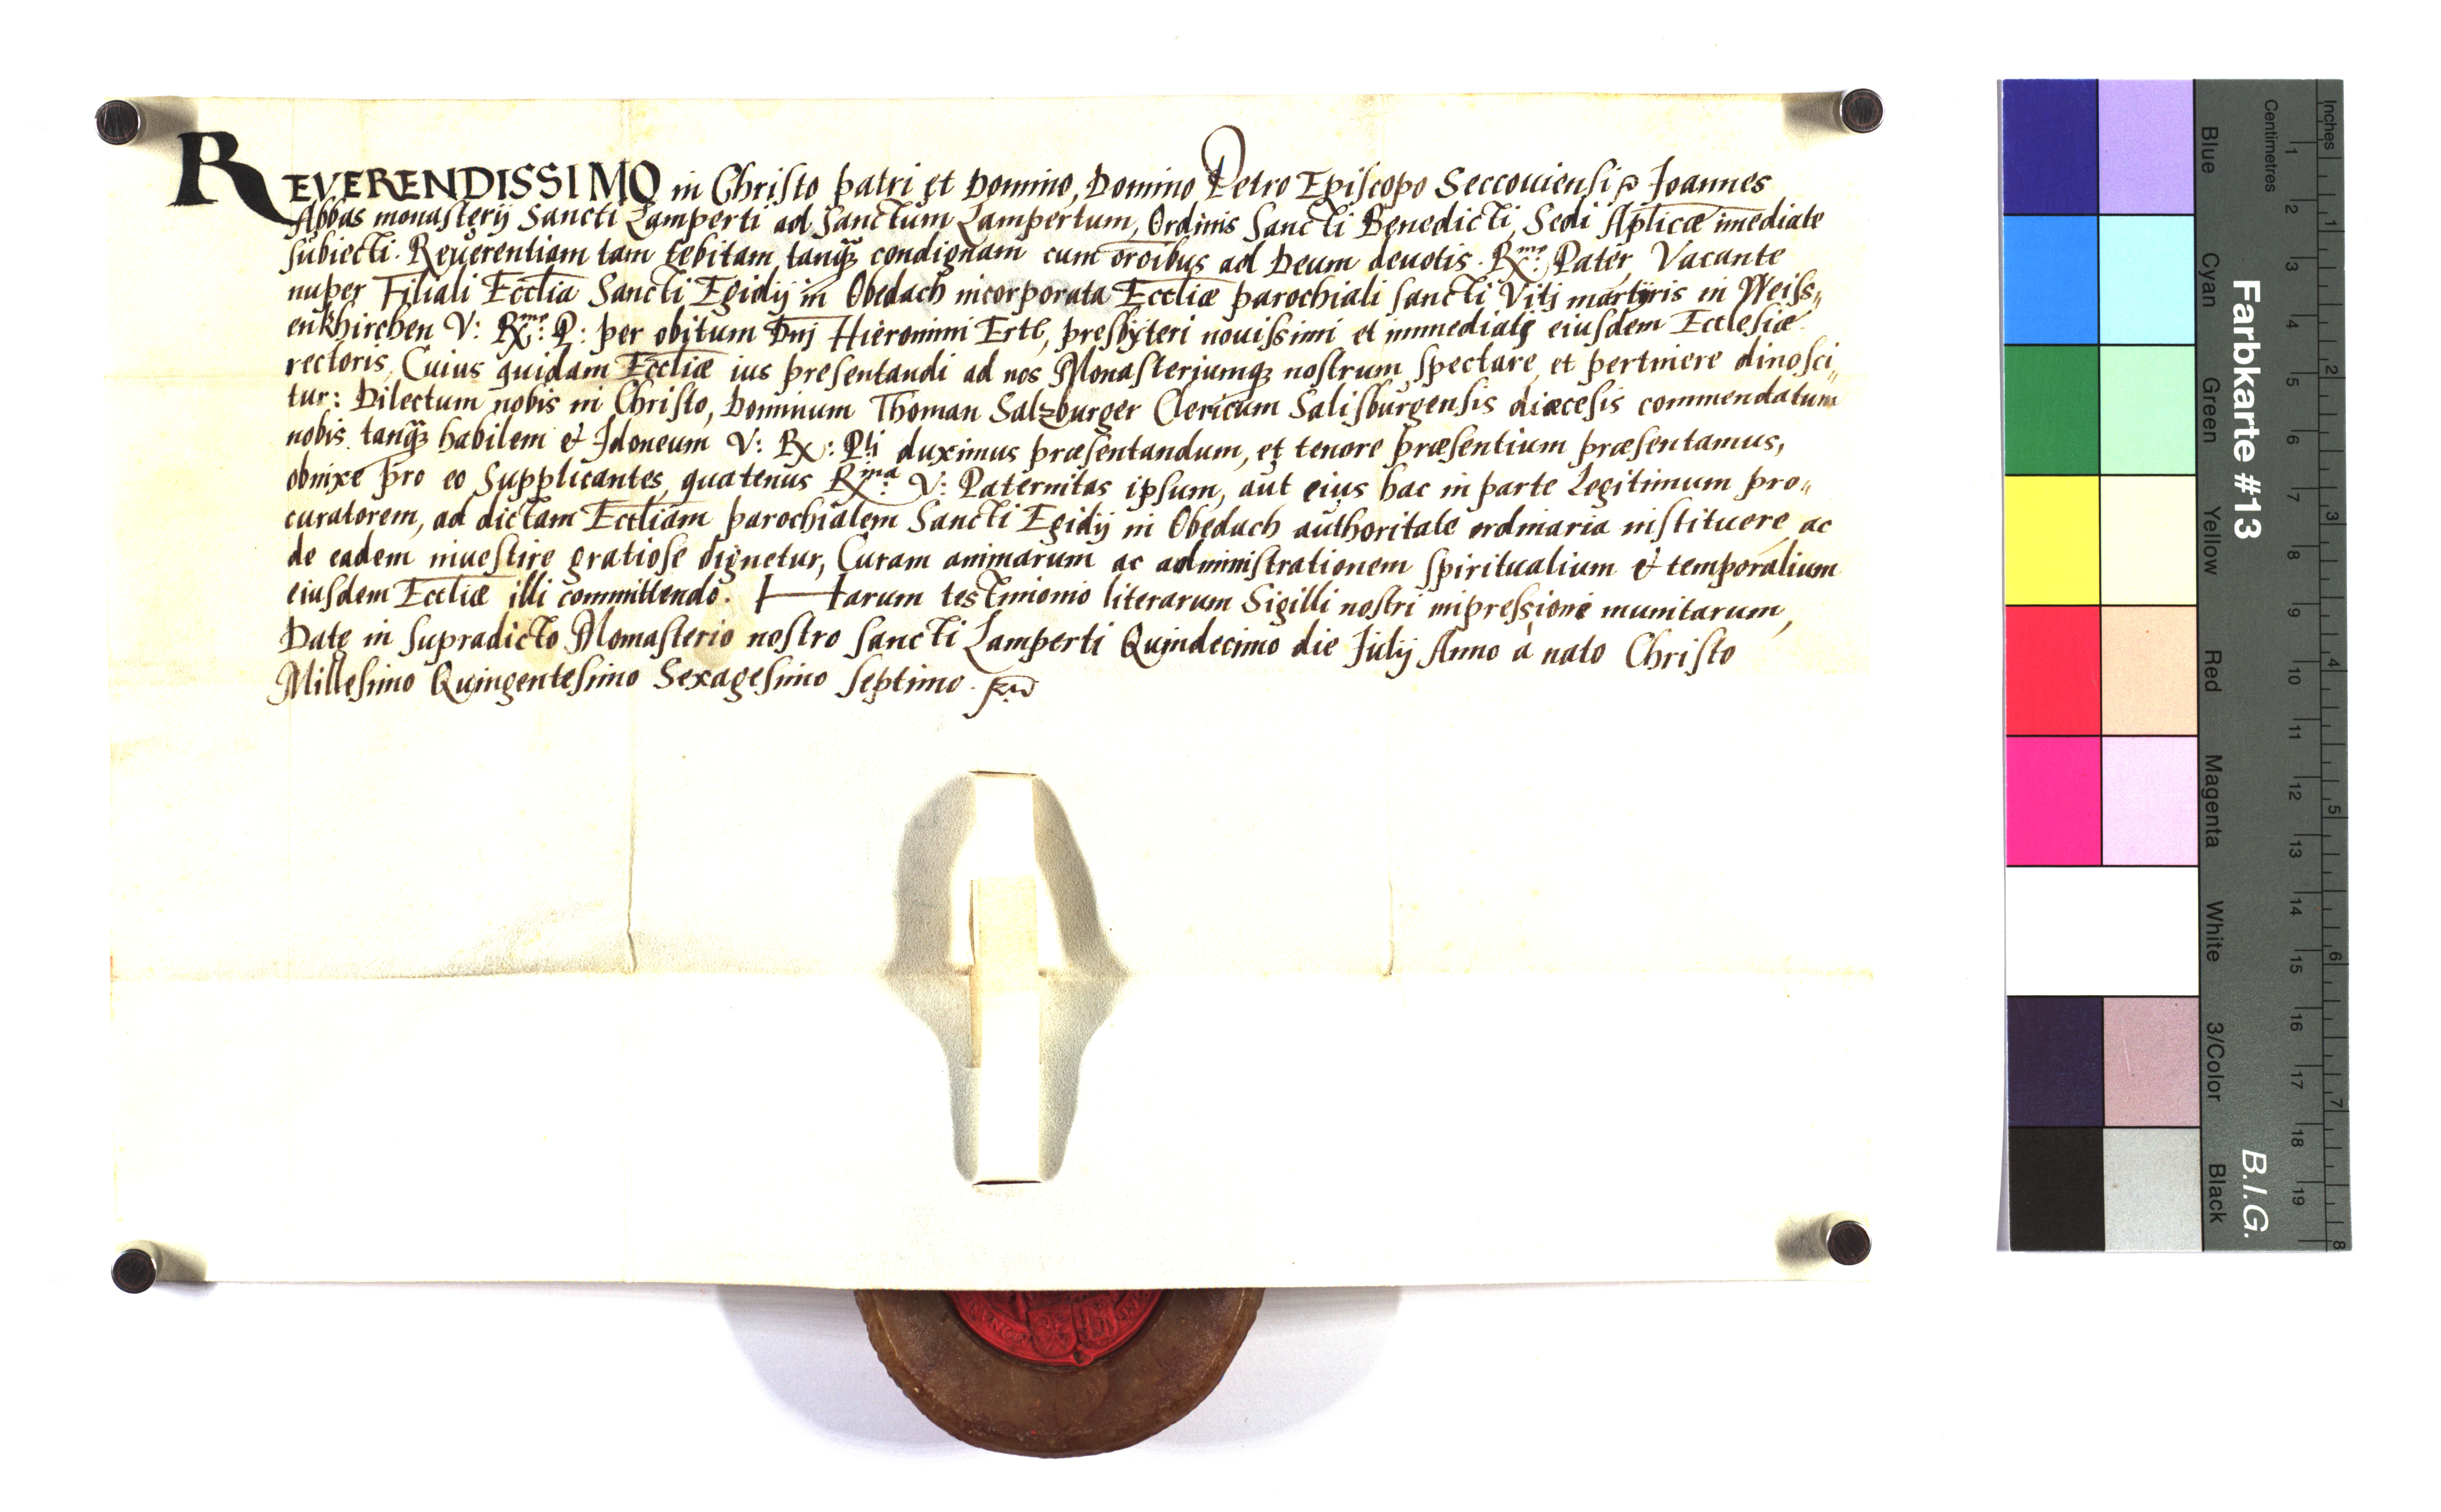 REVERENDISSIMO in Christo patri et Domino, Domino Petro Episcopo Seccouiensi Joannes
Abbas monasterij Sancti Lamperti ad Sanctum Lampertum, Ordinis Sancti Benedicti, Sedi Aplicæ imediate
subiecti. Reuerentiam tam debitam tanq̃ꝫ condignam cum orõibus ad Deum deuotis. Rx^me: Pater, Vacante
nuper Filiali Ecclia Sancti Egidij in Obedach incorporata Eccliæ parochiali sancti Vitj martÿris in Weiss„
enkhirchen V: Rx^me: P: per obitum Dnj Hieronimi Ertl, presbÿteri nouissimi et immediatȩ eiusdem Ecclesiæ
rectoris. Cuius quidam Eccliæ ius presentandi ad nos Monasteriumqꝫ nostrum spectare, et pertinere dinosci„
tur: Dilectum nobis in Christo, Dominum Thoman Salzburger Clericum Salisburgensis diæcesis commendatum
nobis tanq̃ꝫ habilem & Idoneum V: Rx: Pti duximus præsentandum, et tenore præsentium præsentamus,
obnixe pro eo Supplicantes, quatenus Rx^ma: V: Paternitas ipsum, aut eius hac in parte Legitimum pro„
curatorem, ad dictam Eccliam parochialem Sancti Egidij in Obedach authoritate ordinaria instituere, ac
de eadem inuestire gratiose dignetur, Curam animarum ac administrationem spiritualium & temporalium
eiusdem Eccliæ illi committendo. Harum testimonio literarum Sigilli nostri impressione munitarum,
Datȩ in supradicto Monasterio nostro sancti Lamperti Quindecimo die Julij Anno à nato Christo
Millesimo Quingentesimo Sexagesimo septimo.
Farbkarte #13
B.I.G.
Inches
Centimetres
1 2 3 4 5 6 7 8 9 10 11 12 13 14 15 16 17 18 19
1 2 3 4 5 6 7 8
Blue
Cyan
Green
Yellow
Red
Magenta
White
3/Color
Black